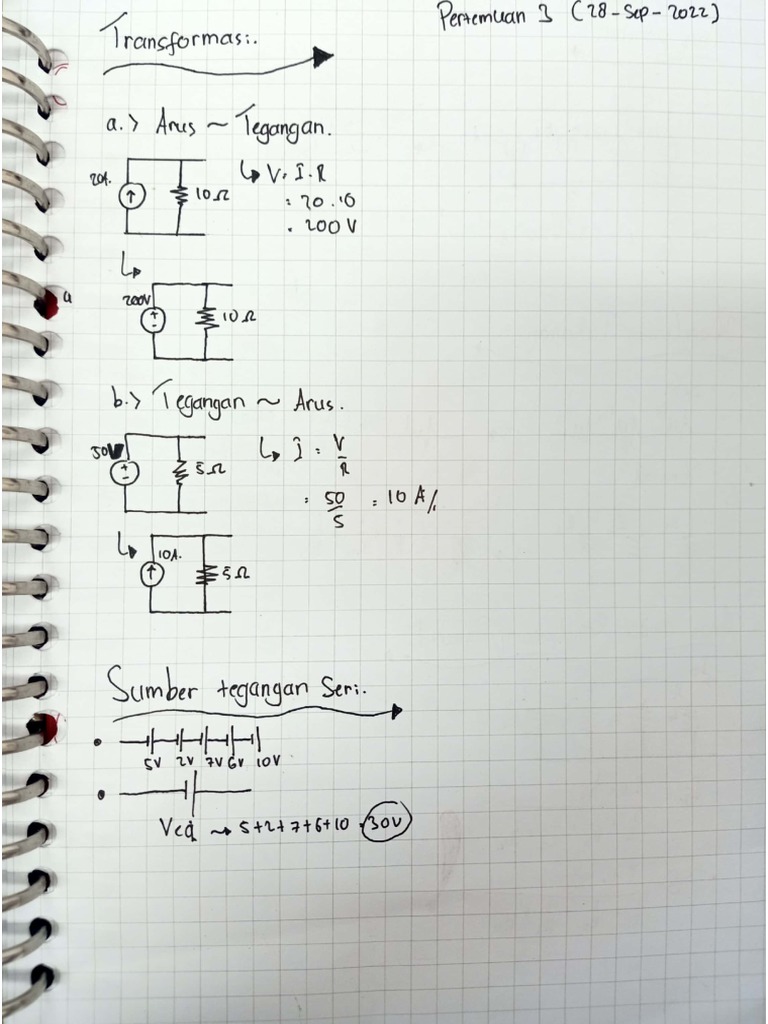 Pertemuan 3 (28-Sep-2022)
Transformasi.
a.> Arus ~ Tegangan.
20A.
10Ω
V = I.R
= 20.10
= 200V
a
200V
10Ω
b.> Tegangan ~ Arus.
50V
5Ω
I = V/R
= 50/5 = 10 A/.
10A.
5Ω
Sumber tegangan Seri.
5V 2V 7V 6V 10V
Veq → 5+2+7+6+10 = 30V